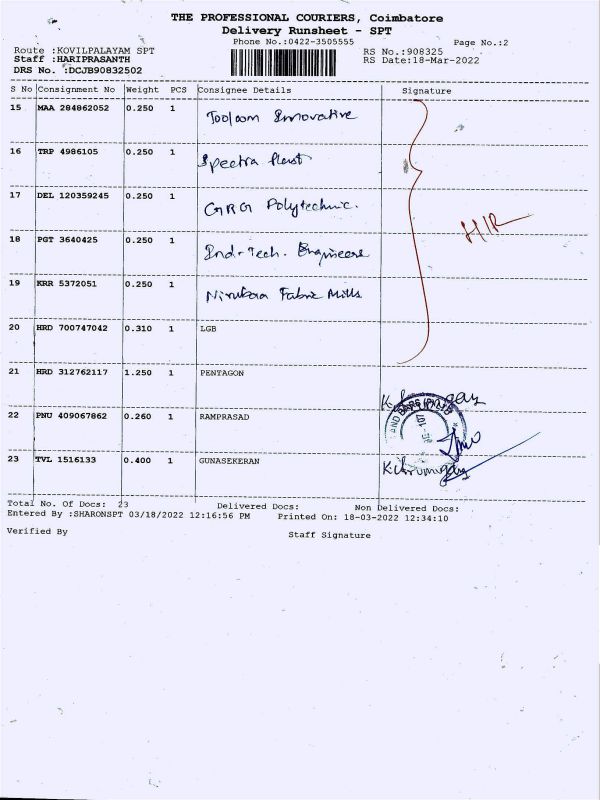 THE PROFESSIONAL COURIERS, Coimbatore
Delivery Runsheet - SPT
Phone No.:0422-3505555
Page No.:2
Route :KOVILPALAYAM SPT
RS No.:908325
Staff :HARIPRASANTH
RS Date:18-Mar-2022
DRS No. :DCJB90832502
S No Consignment No Weight PCS Consignee Details Signature
15 MAA 284862052 0.250 1 Innovative
16 TRP 4986105 0.250 1 Spectra Plast
17 DEL 120359245 0.250 1 GRG Polytechnic.
18 PGT 3640425 0.250 1 Ind-Tech. Engineers
19 KRR 5372051 0.250 1 Fabric Mills
H/R
20 HRD 700747042 0.310 1 LGB
21 HRD 312762117 1.250 1 PENTAGON
22 PNU 409067862 0.260 1 RAMPRASAD
23 TVL 1516133 0.400 1 GUNASEKERAN
Total No. Of Docs: 23 Delivered Docs: Non Delivered Docs:
Entered By :SHARONSPT 03/18/2022 12:16:56 PM Printed On: 18-03-2022 12:34:10
Verified By
Staff Signature